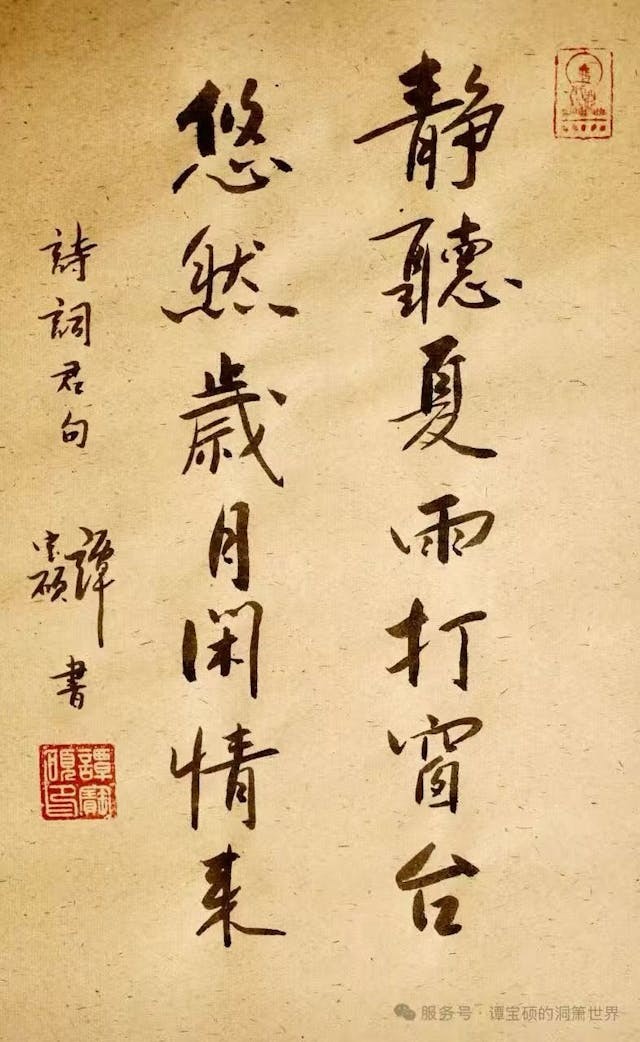 靜聽夏雨打窗台
悠然歲月閑情來
詩詞君句
譚宝硕書
譚寶碩印
服务号·谭宝硕的洞箫世界